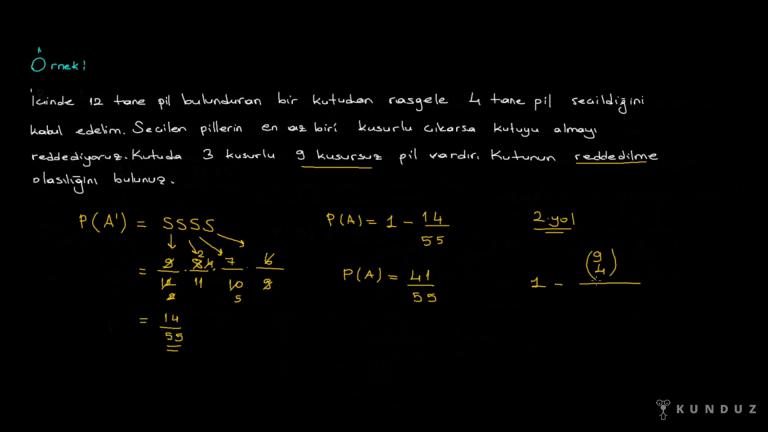 Örnek:
İçinde 12 tane pil bulunduran bir kutudan rasgele 4 tane pil seçildiğini
kabul edelim. Seçilen pillerin en az biri kusurlu çıkarsa kutuyu almayı
reddediyoruz. Kutuda 3 kusurlu 9 kusursuz pil vardır. Kutunun reddedilme
olasılığını bulunuz.
P(A') = SSSS
= 9/12 · 8/11 · 7/10 · 6/9
= 14/55
P(A) = 1 - 14/55
P(A) = 41/55
2.yol
1 - (9 4)
KUNDUZ